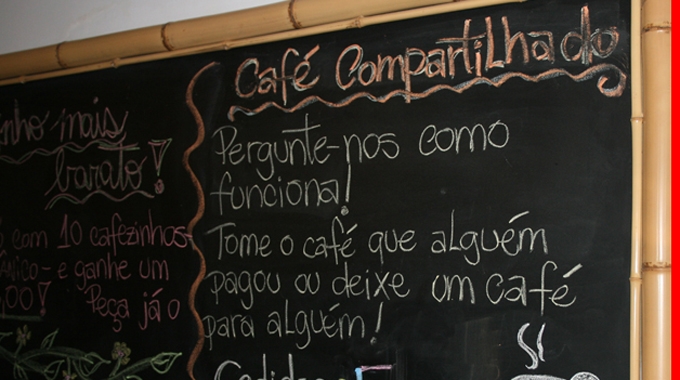 mais
barato!
com 10 cafezinhos
- e ganhe um
Peça já o
Café Compartilhado
Pergunte-nos como
funciona!
Tome o café que alguém
pagou ou deixe um café
para alguém!